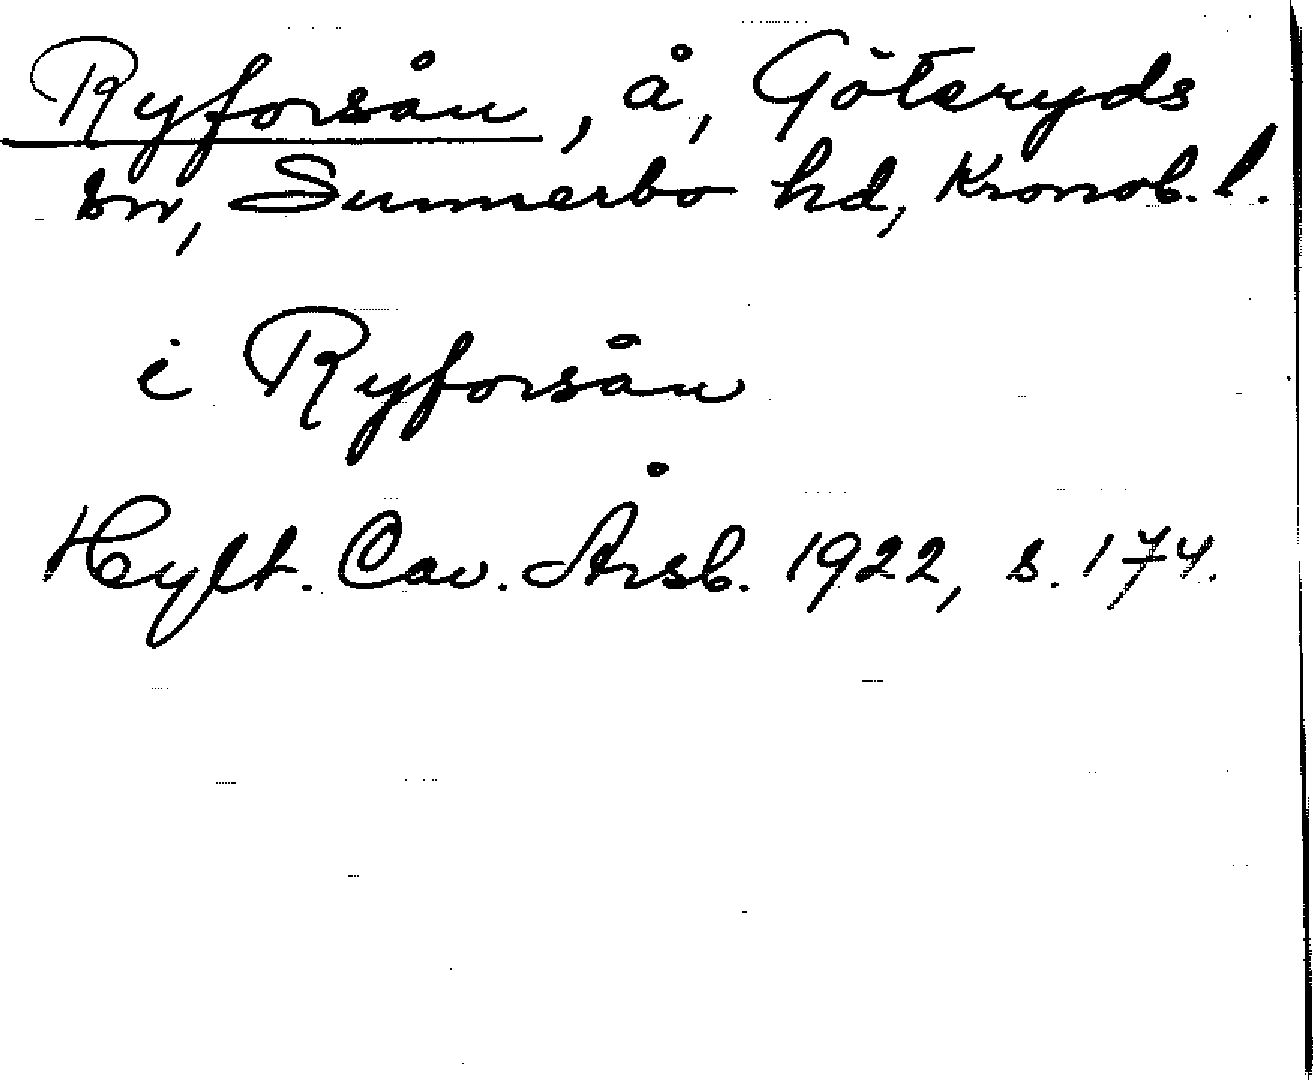 Ryforsån, å, Göteryds
sn, Sunnerbo hd, Kronob. l.
i Ryforsån
Hylt. Cav. Årsb. 1922, s. 174.